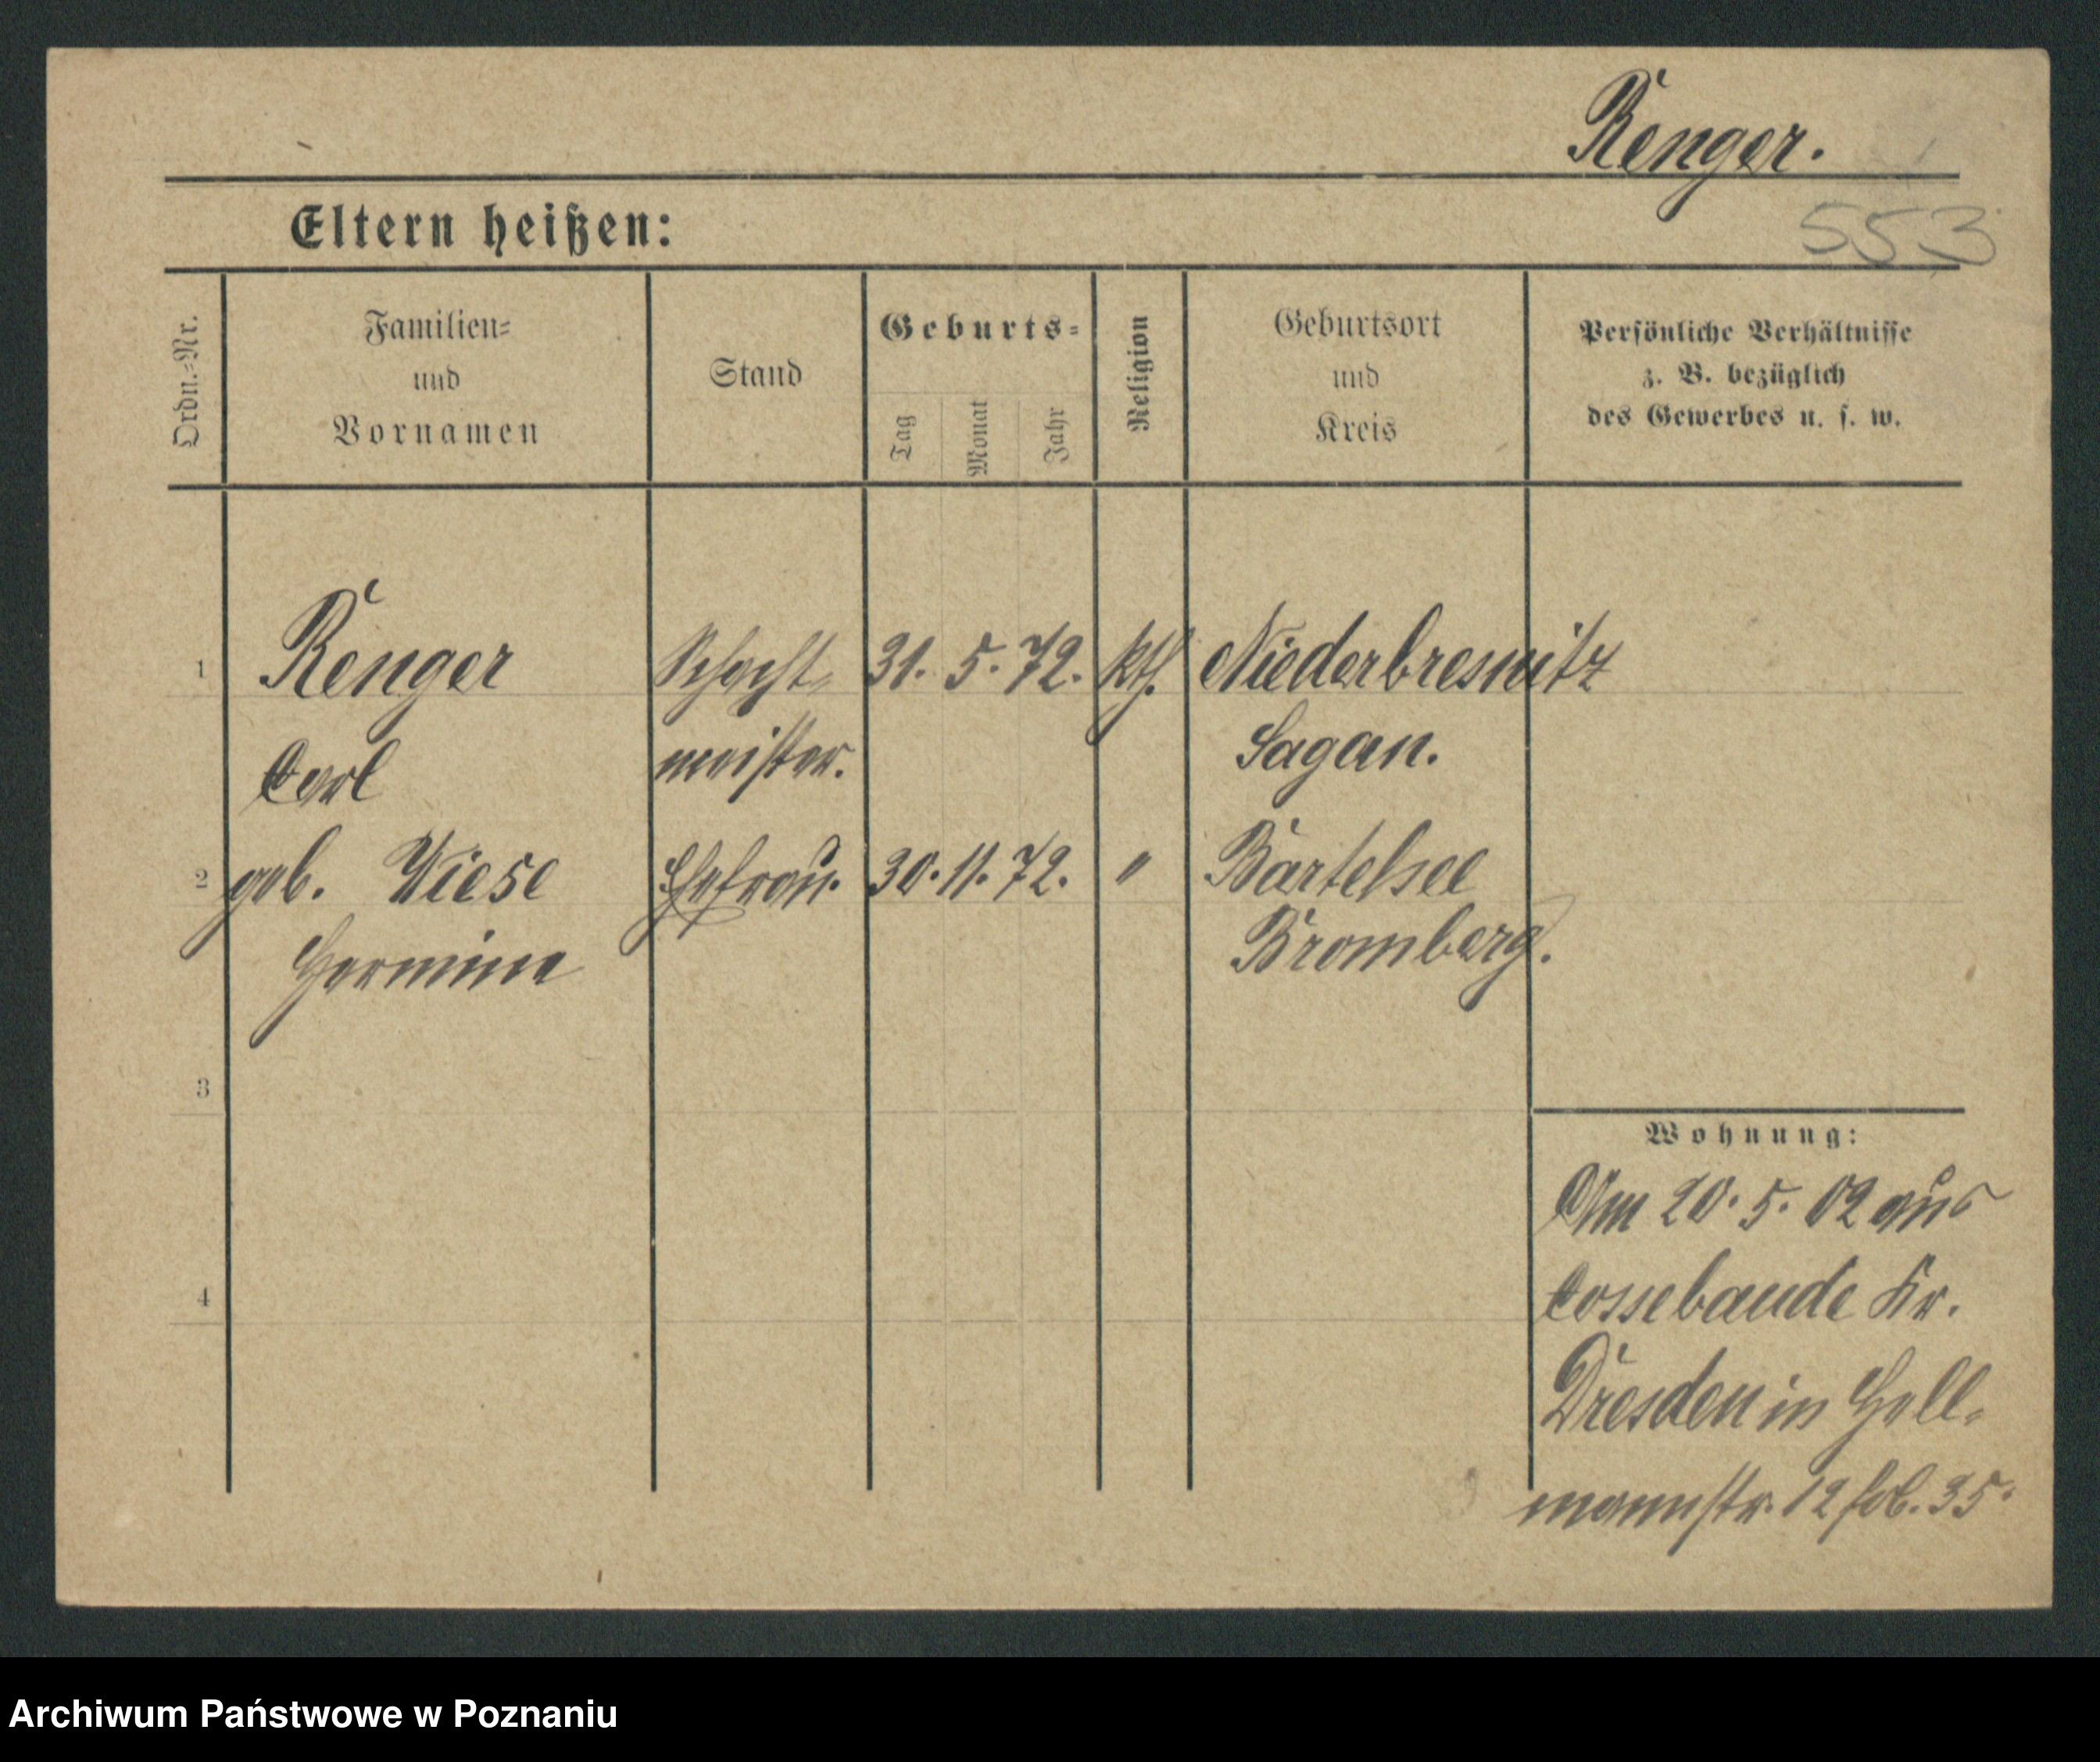 Renger.
Eltern heißen:
553
Ordn.-Nr.
Familien-
und
Vornamen
Stand
Geburts-
Tag
Monat
Jahr
Religion
Geburtsort
und
Kreis
Persönliche Verhältnisse
z. B. bezüglich
des Gewerbes u. s. w.
1 Renger Schacht- 31. 5. 72. kth. Niederbresnitz
Carl meister. Sagan.
2 geb. Wiese Ehefrau. 30. 11. 72. " Bartelsee
Hermine Bromberg.
3
Wohnung:
Am 20. 5. 02 aus
4 Cossebaude Kr.
Dresden in Hell-
mannstr. 12 35.
Archiwum Państwowe w Poznaniu